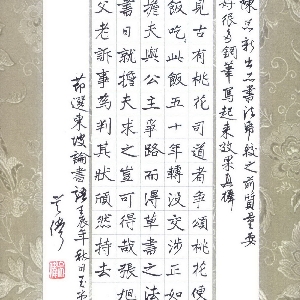 新出工書法
之前質量要
好很多鋼筆寫起來效果真棒
見古有桃花悟道者爭頌桃花便
飯吃此飯五十年轉沒交涉正如
擔夫與公主爭路而得草書之法
書日就擔夫求之豈可得哉張旭
父老訴事為判其狀欣然持去
節選東坡論書
壬辰年秋日玉